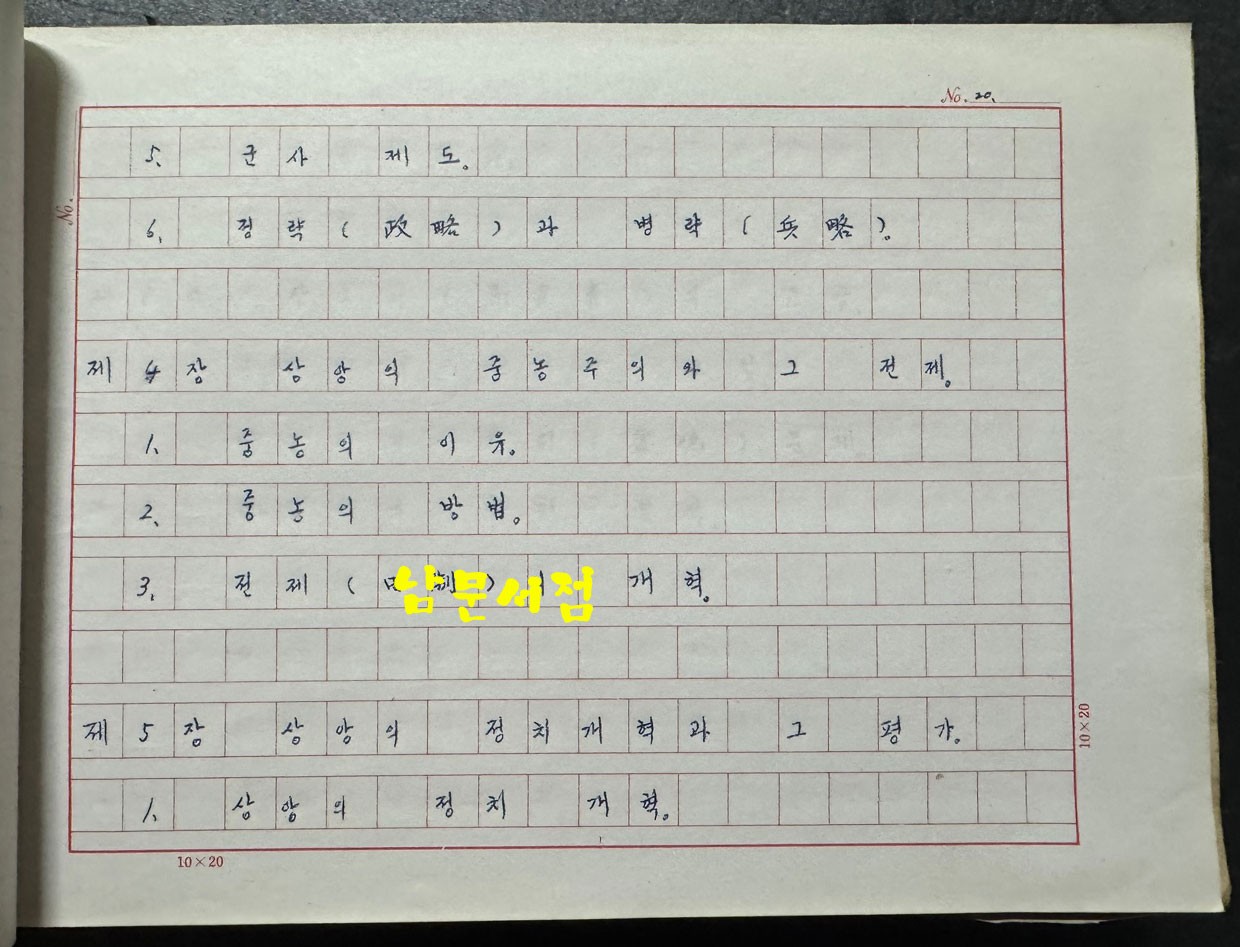 No. 20.
No.
5. 군사 제도。
6. 정략(政略)과 병략(兵略)。
제4장 상앙의 중농주의와 그 전제。
1. 중농의 이유。
2. 중농의 방법。
3. 전제( 制) 개혁。
남문서점
제5장 상앙의 정치개혁과 그 평가。
1. 상앙의 정치 개혁。
10×20
10×20